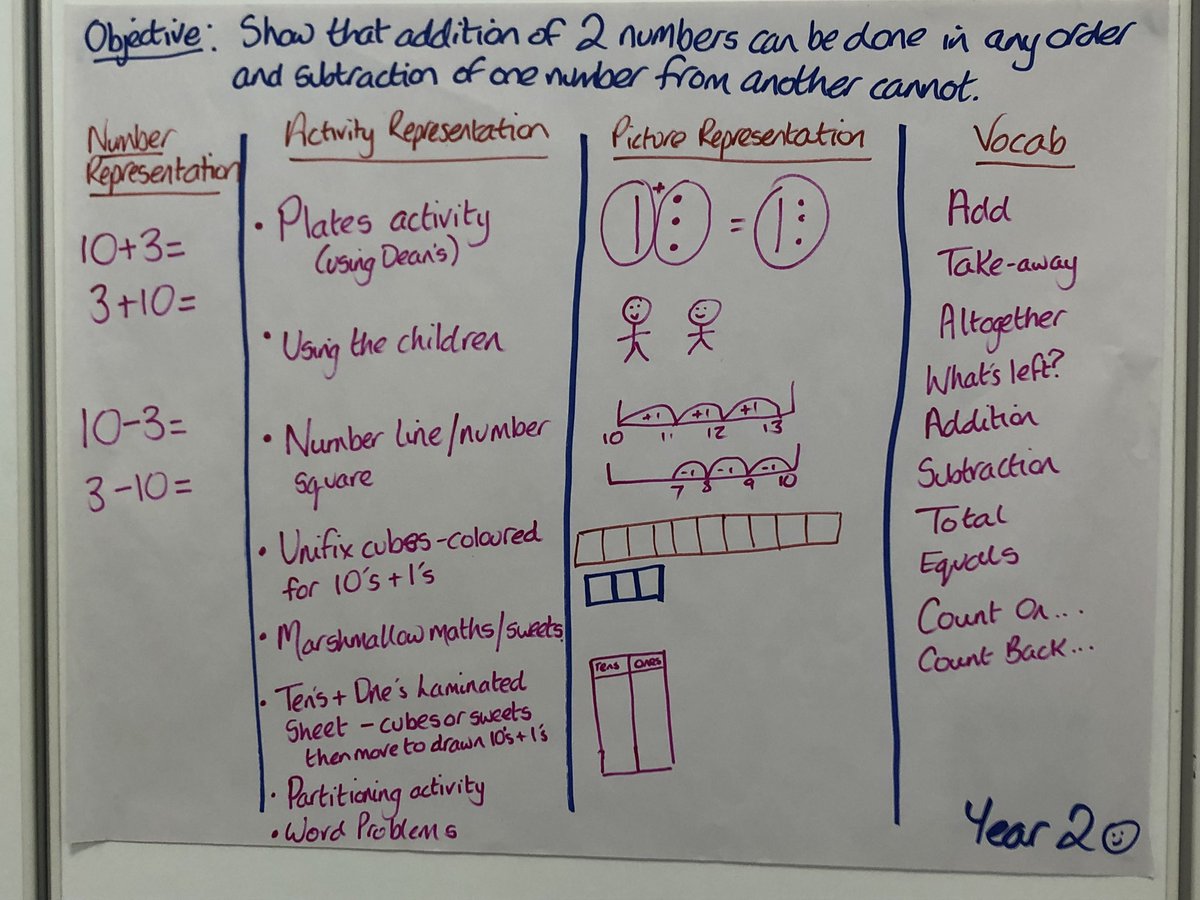 Objective: Show that addition of 2 numbers can be done in any order
and subtraction of one number from another cannot.
Number
Representation
10+3=
3+10=
10-3=
3-10=
Activity Representation
• Plates activity
(using Dean's)
• Using the children
• Number line/number
square
• Unifix cubes-coloured
for 10's + 1's
• Marshmallow maths/sweets
• Ten's + One's Laminated
Sheet - cubes or sweets
then move to drawn 10's + 1's
• Partitioning activity
• Word Problems
Picture Representation
+ =
+1 +1 +1
10 11 12 13
-1 -1 -1
7 8 9 10
Tens Ones
Vocab
Add
Take-away
Altogether
What's left?
Addition
Subtraction
Total
Equals
Count On...
Count Back...
Year 2